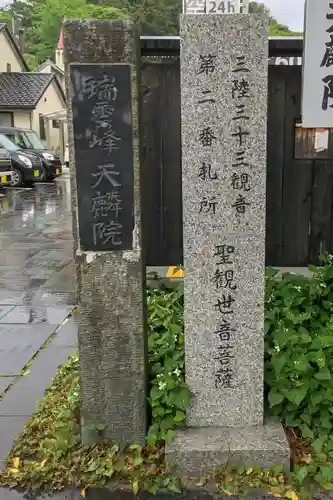 24h
三陸三十三観音
第二番札所
聖観世音菩薩
瑞雲峰天麟院
麟院